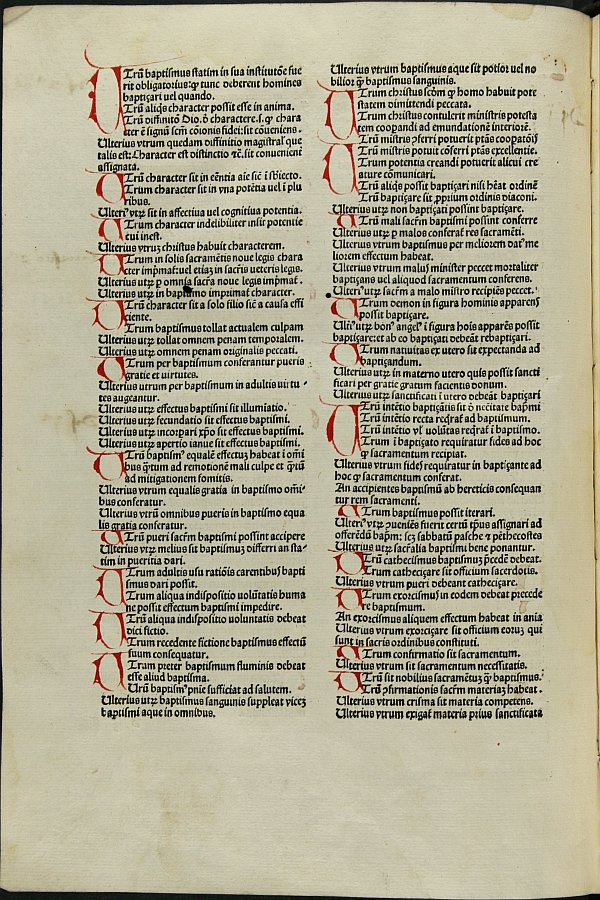 Utrũ baptismus statim in sua institutõe fue
rit obligatorius: ꝙ tunc deberent homines
baptiçari vel quando.
Utrũ aliq̃s character possit esse in anima.
Utrũ diffinitõ Dio. ð charactere. s. ꝙ chara
cter ẽ signũ scm̃ cõionis fidei: sit cõueniens.
Ulterius vtrum quedam diffinitio magistral᷒ que
talis est: Character est distinctio ⁊c̃. sit conuenienť
assignata.
Utrũ character sit in eẽntia aĩe sič ĩ sb̃iecto.
Utrum character sit in vna potẽtia vel ĩ plu
ribus.
Ulteri᷒ vtꝝ sit in affectiua vel cognitiua potentia.
Utrum character indelibiliter insit potentie
cui inest.
Ulterius vtrũ christus habuit characterem.
Utrum in solis sacramẽtis noue legis chara
cter imp̃mať: vel etiã in sacr̃is veteris legis.
Ulterius utꝝ p omnia sacr̃a noue legis imp̃mať.
Ulterius utꝝ in baptismo imprimať character.
Utrũ character sit a solo filio sič a causa effi
ciente.
Utrum baptismus tollat actualem culpam
Ulterius utꝝ tollat omnem penam temporalem.
Ulterius utꝝ omnem penam originalis peccati.
Utrum per baptismum conferantur pueris
gratie et virtutes.
Ulterius utrum per baptismum in adultis uirtu-
tes augeantur.
Ulterius utꝝ effectus baptismi sit illumĩatio.
Ulterius utꝝ fecundatio sit effectus baptismi.
Ulterius utꝝ incorpari xp̃o sit effectus baptismi.
Ulterius utꝝ apertio ianue sit effectus baptismi.
Utrũ baptism᷒ equalẽ effectuȝ habeat ĩ om̃i
bus q̃tum ad remotionẽ mali culpe et q̃tũ
ad mitigationem fomitis.
Ulterius vtrum equalis gratia in baptismo om̃i-
bus conferatur.
Ulterius vtrũ omnibus pueris in baptismo equa
lis gratia conferatur.
Utrũ pueri sacr̃m baptismi possint accipere
Ulterius vtꝝ melius sit baptismuȝ differri an sta-
tim in pueritia dari.
Utrum adultis usu ratiõis carentibȝ bapti
smus dari possit.
Utrum aliqua indispositio uolũtatis huma
ne possit effectum baptismi impedire.
Utrũ aliqua indispositio uoluntatis debeat
dici fictio.
Utrum recedente fictione baptismus effectũ
suum consequatur.
Utrum preter baptismum fluminis debeat
esse aliud baptisma.
Utrũ baptism᷒ pñie sufficiat ad salutem.
Ulterius utꝝ baptismus sanguinis suppleat viceȝ
baptismi aque in omnibus.
Ulterius vtrum baptismus aque sit potior uel no
bilior q̃ȝ baptismus sanguinis.
Utrum christus scðm ꝙ homo habuit pote
statem dimittendi peccata.
Utrum christus contulerit ministris potesta
tem coopandi ad emundationẽ interiorẽ.
Utrũ mĩstris ꝯferri potuerit ptãs coopatõis
Utrũ mĩstris potuit cõferri ptãs excellentie.
Utrum potentia creandi potuerit alicui cre
ature comunicari.
Utrũ aliq̃s possit baptiçari nisi h̃eat ordinẽ
Utrũ baptiçare sit ꝓprium ordinis diaconi.
Ulterius utꝝ non baptiçati possint baptiçare.
Utrũ mali sacr̃m baptismi possint conferre
Ulterius utꝝ p malos conferať res sacramẽti.
Ulterius vtrum baptismus per meliorem dať me
liorem effectum habeat.
Ulterius vtrum malus minister peccet mortaliter
baptiçans vel aliquod sacramentum conferens.
Ulteri᷒ utꝝ sacr̃m a malo mĩstro recipiẽs peccet.
Utrum demon in figura hominis apparens
possit baptiçare.
Ult̃i᷒ utꝝ bon᷒ angel᷒ ĩ figura hoĩs apparẽs possit
baptiçare: et ab eo baptiçati debeãt rebaptiçari.
Utrum natiuitas ex utero sit expectanda ad
baptiçandum.
Ulterius utꝝ in materno utero quis possit sancti
ficari per gratie gratum facientis donum.
Ulterius utꝝ sanctificati ĩ utero debeãt baptiçari
Utrũ intẽtio baptiçãtis sit ð necitate bap̃mi
Utrũ intẽtio recta req̃rať ad baptismum.
Utrũ intẽtio vĩ uolũtas req̃rať ĩ baptismo.
Utrum ĩ baptiçato requiratur fides ad hoc
ꝙ sacramentum recipiat.
Ulterius vtrum fides requiratur in baptiçante ad
hoc ꝙ sacramentum conferat.
An accipientes baptismũ ab hereticis consequan
tur rem sacramenti.
Utrum baptismus possit iterari.
Ulteri᷒ vtꝝ ꝯueniẽs fuerit certũ tp̃us assignari ad
offerẽdũ bap̃m: scȝ sabbatũ pasche ⁊ pẽthecostes
Ulterius utꝝ sacr̃alia baptismi bene ponantur.
Utrũ cathecismus baptismũ p̃cedẽ debeat.
Utrum catheciçare sit officium sacerdotis.
Ulterius vtrum pueri debeant catheciçare.
Utrum exorcismus in eodem debeat precede
re baptismum.
An exorcismus aliquem effectum habeat in aĩa
Ulterius vtrum exorciçare sit officium eoruȝ qui
sunt in sacris ordinibus constituti.
Utrum confirmatio sit sacramentum.
Ulterius vtrum sit sacramentum necessitatis.
Utrũ sit nobilius sacramẽtuȝ q̃ȝ baptismus.
Utrũ ꝯfirmationis sacr̃m materiaȝ habeat.
Ulterius vtrum crisma sit materia competens.
Ulterius vtrum exigať materia prius sanctificata